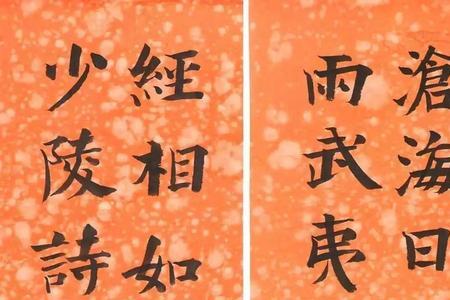 滄海日
雨武夷
經相如
少陵詩